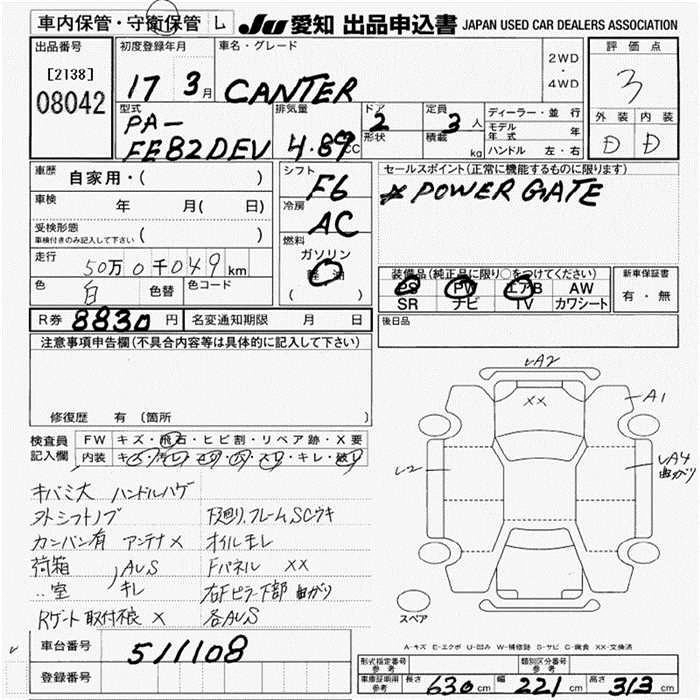 車内保管・守衛保管 L JU 愛知 出品申込書 JAPAN USED CAR DEALERS ASSOCIATION
出品番号 初度登録年月 車名・グレード 2WD・4WD 評価点
[2138]
08042 17 3月 CANTER 3
型式 排気量 ドア 定員 ディーラー・並行 外装 内装
PA- 2 3人 モデル年式 年 D D
FE82DEV 4.89CC 形状 積載 kg ハンドル 左・右
車歴 自家用・( ) シフト セールスポイント(正常に機能するものに限ります)
F6 ※POWER GATE
車検 年 月( 日) 冷房
AC
受検形態
車検付きのみ記入して下さい ( ) 燃料
ガソリン
走行 50万0千049km 軽油 装備品(純正品に限り○をつけてください) 新車保証書
色 白 色替 色コード ( ) PS PW エアB AW 有・無
SR ナビ TV カワシート
R券 8830円 名変通知期限 月 日 後日品
注意事項申告欄(不具合内容等は具体的に記入して下さい)
LA2
XX
A1
修復歴 有(箇所 )
検査員 FW キズ・飛石・ヒビ割・リペア跡・X要
記入欄 内装
L2
LA4
曲ガリ
キバミ大 ハンドルハゲ
外シフトノブ 下廻り,フレームSCウキ
カンバン有 アンテナ× オイルモレ
荷箱 AUS Fパネル XX
〃室 キレ 右Fピラー下部 曲ガリ
Rゲート取付 × 各AUS
スペア
A-キズ E-エクボ U-凹み W-補修跡 S-サビ C-腐食 XX-交換済
車台番号 511108
登録番号
形式指定番号 参考 類別区分番号 参考
車庫証明用 参考 長さ 630cm 幅 221cm 高さ 313cm